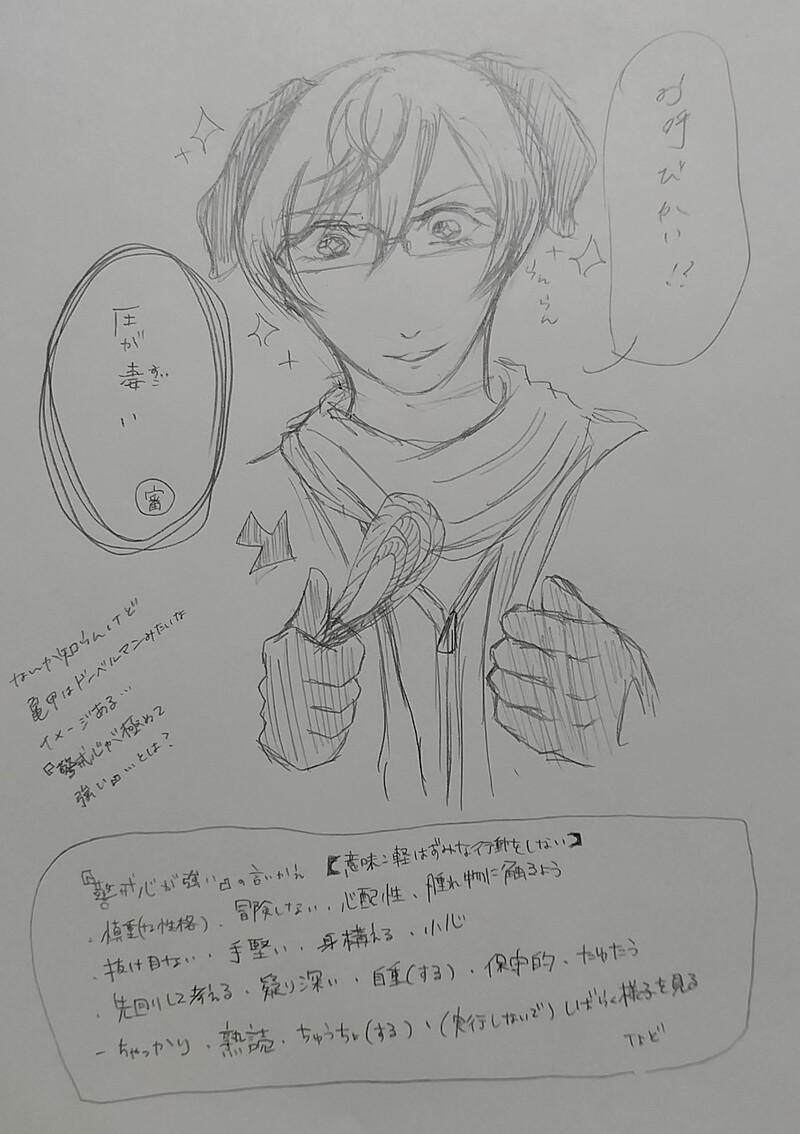 お呼びかい!?
らんらん
圧が凄い
すご
審
なんか知らんけど
亀甲はドーベルマンみたいな
イメージある…
『警戒心が極めて
強い』…とは?
『警戒心が強い』の言いかえ 【意味:軽はずみな行動をしない】
・慎重(な性格)・冒険しない・心配性、腫れ物に触るよう
・抜け目ない・手堅い・身構える・小心
・先回りして考える・疑り深い・自重(する)・保守的・たゆたう
－ちゃっかり・熟読・ちゅうちょ(する)、(実行しないで)しばらく様子を見る
など